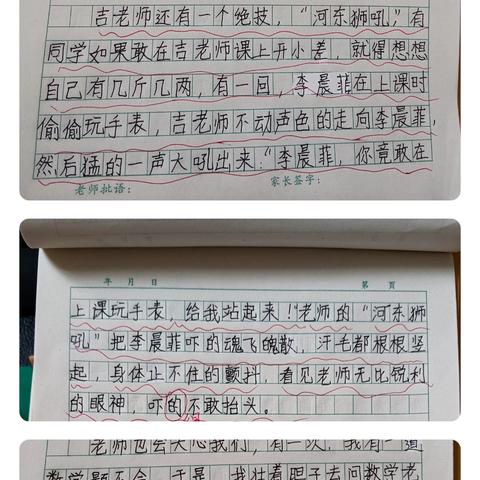 吉老师还有一个绝技，“河东狮吼”，有
同学如果敢在吉老师课上开小差，就得想想
自己有几斤几两，有一回，李晨菲在上课时
偷偷玩手表，吉老师不动声色的走向李晨菲，
然后猛的一声大吼出来：“李晨菲，你竟敢在
老师批语： 家长签字：
年 月 日 第 页
上课玩手表，给我站起来！”老师的“河东狮
吼”把李晨菲吓的魂飞魄散，汗毛都根根竖
起，身体止不住的颤抖，看见老师无比锐利
的眼神，吓的不敢抬头。
老师也会关心我们，有一次，我有一道
数学题不会，于是，我壮着胆子去问数学老